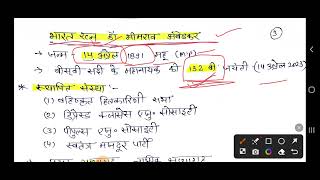 भारत रत्न डॉ भीमराव अंबेडकर
③
→ जन्म - 14 अप्रैल 1891 महू (M.P)
→ बीसवीं सदी के महानायक की 132 वीं जयंती (14 अप्रैल 2023)
* स्थापित संस्था -
(1) बहिष्कृत हितकारिणी सभा
(2) डिप्रेस्ड क्लासेस एजु० सोसाइटी
(3) पीपुल्स एजु० सोसाइटी
(4) स्वतंत्र मजदूर पार्टी